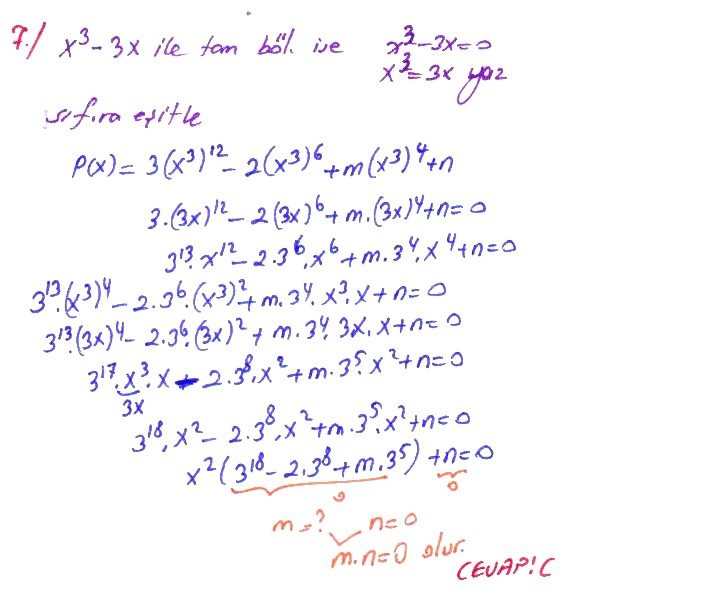 7./ x³ - 3x ile tam böl. ise x³ - 3x = 0
x³ = 3x yaz
sıfıra eşitle
P(x) = 3(x³)¹² - 2(x³)⁶ + m(x³)⁴ + n
3.(3x)¹² - 2(3x)⁶ + m.(3x)⁴ + n = 0
3¹³.x¹² - 2.3⁶.x⁶ + m.3⁴.x⁴ + n = 0
3¹³.(x³)⁴ - 2.3⁶.(x³)² + m.3⁴.x³.x + n = 0
3¹³.(3x)⁴ - 2.3⁶.(3x)² + m.3⁴.3x.x + n = 0
3¹⁷.x³.x - 2.3⁸.x² + m.3⁵.x² + n = 0
3x
3¹⁸.x² - 2.3⁸.x² + m.3⁵.x² + n = 0
x²(3¹⁸ - 2.3⁸ + m.3⁵) + n = 0
0 0
m = ? n = 0
m.n = 0 olur.
CEVAP: C